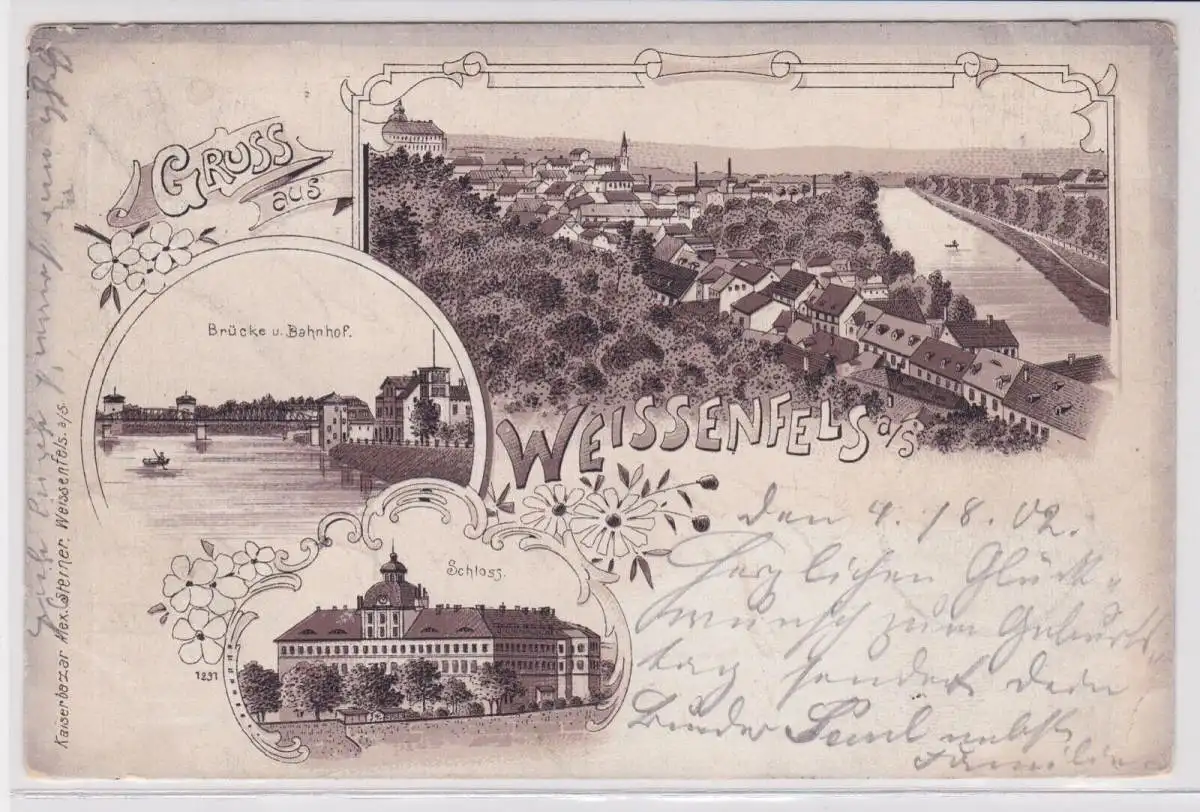 GRUSS
aus
WEISSENFELS a/S
Brücke u. Bahnhof.
Schloss.
1291
Kaiserbazar Alex. Steiner, Weissenfels. a/S.
den 4. 18. 02.
Herzlichen Glück-
wunsch zum Geburts
tag sendet dein
Bruder Paul nebst
Familie